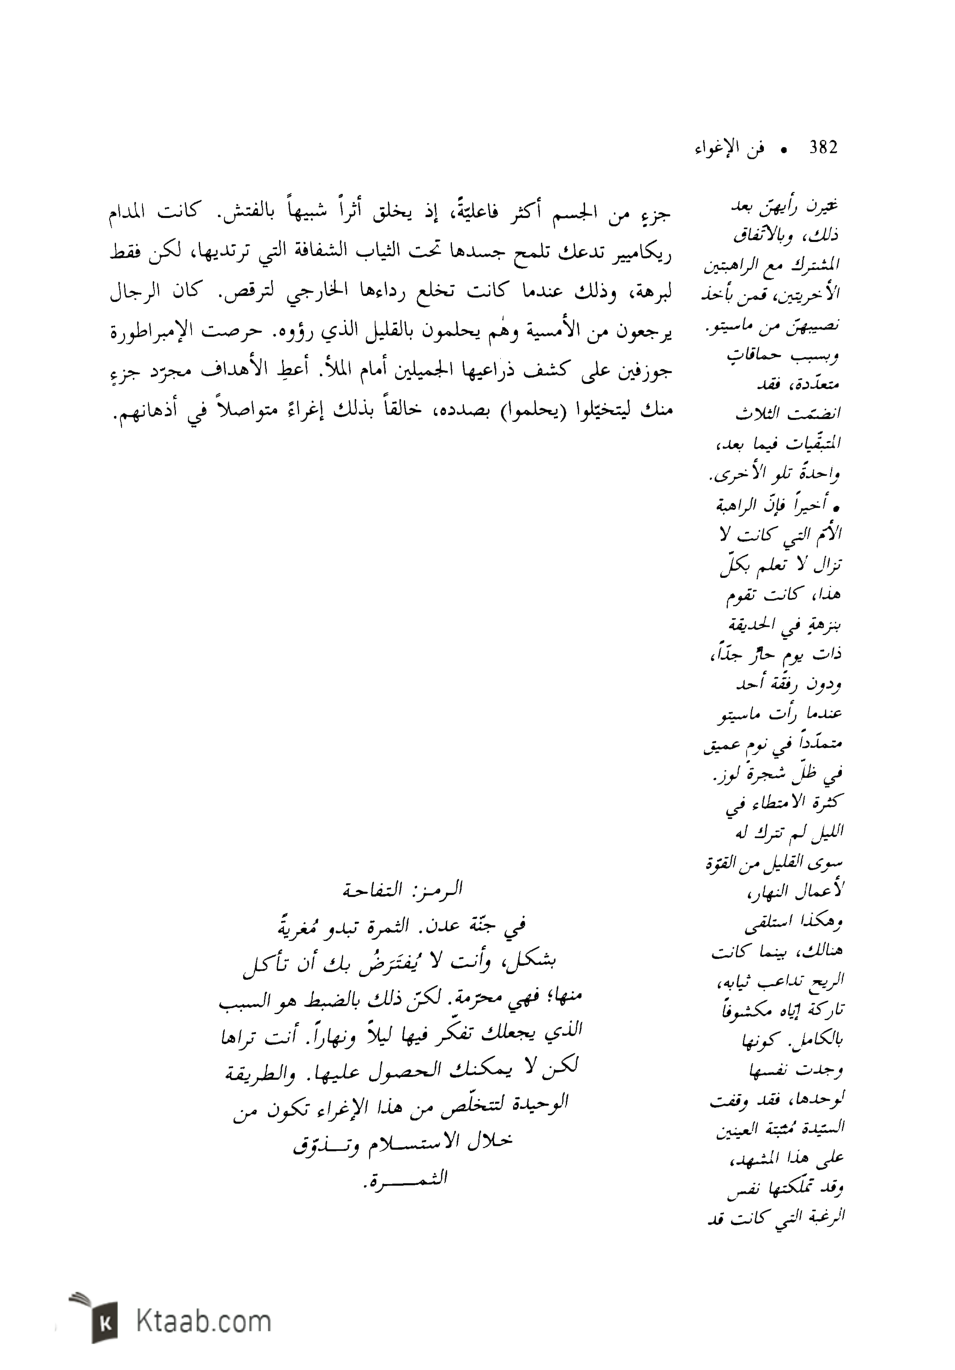 382 • فن الإغواء
جزءٍ من الجسم أكثر فاعليّةً، إذ يخلق أثراً شبيهاً بالفتش. كانت المدام
ريكاميير تدعك تلمح جسدها تحت الثياب الشفافة التي ترتديها، لكن فقط
لبرهة، وذلك عندما كانت تخلع رداءها الخارجي لترقص. كان الرجال
يرجعون من الأمسية وهُم يحلمون بالقليل الذي رؤوه. حرصت الإمبراطورة
جوزفين على كشف ذراعيها الجميلين أمام الملأ. أعطِ الأهداف مجرّد جزءٍ
منك ليتخيّلوا (يحلموا) بصدده، خالقاً بذلك إغراءً متواصلاً في أذهانهم.
الرمز: التفاحة
في جنّة عدن. الثمرة تبدو مُغريةً
بشكل، وأنت لا يُفتَرَضُ بك أن تأكل
منها؛ فهي محرّمة. لكنّ ذلك بالضبط هو السبب
الذي يجعلك تفكّر فيها ليلاً ونهاراً. أنت تراها
لكن لا يمكنك الحصول عليها. والطريقة
الوحيدة لتتخلّص من هذا الإغراء تكون من
خلال الاستسلام وتذوّق
الثمرة.
غيّرن رأيهنّ بعد
ذلك، وبالاتّفاق
المشترك مع الراهبتين
الأخريتين، قمن بأخذ
نصيبهنّ من ماسيتو.
وبسبب حماقاتٍ
متعدّدة، فقد
انضمّت الثلاث
المتبقّيات فيما بعد،
واحدةً تلو الأخرى.
• أخيراً فإنّ الراهبة
الأم التي كانت لا
تزال لا تعلم بكلّ
هذا، كانت تقوم
بنزهةٍ في الحديقة
ذات يوم حارٍّ جدّاً،
ودون رفقة أحد
عندما رأت ماسيتو
متمدّداً في نوم عميق
في ظلّ شجرة لوز.
كثرة الامتطاء في
الليل لم تترك له
سوى القليل من القوّة
لأعمال النهار،
وهكذا استلقى
هنالك، بينما كانت
الريح تداعب ثيابه،
تاركة إيّاه مكشوفاً
بالكامل. كونها
وجدت نفسها
لوحدها، فقد وقفت
السيّدة مُثبّتة العينين
على هذا المشهد،
وقد تملّكتها نفس
الرغبة التي كانت قد
Ktaab.com